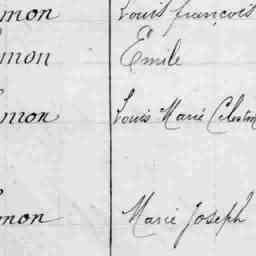 mon Louis françois
mon Emile
mon Louis Marie Celestin
mon Marie Joseph